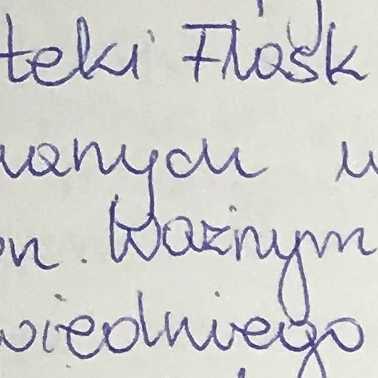 teki Flask
wanych w
on. Ważnym
wiedniego